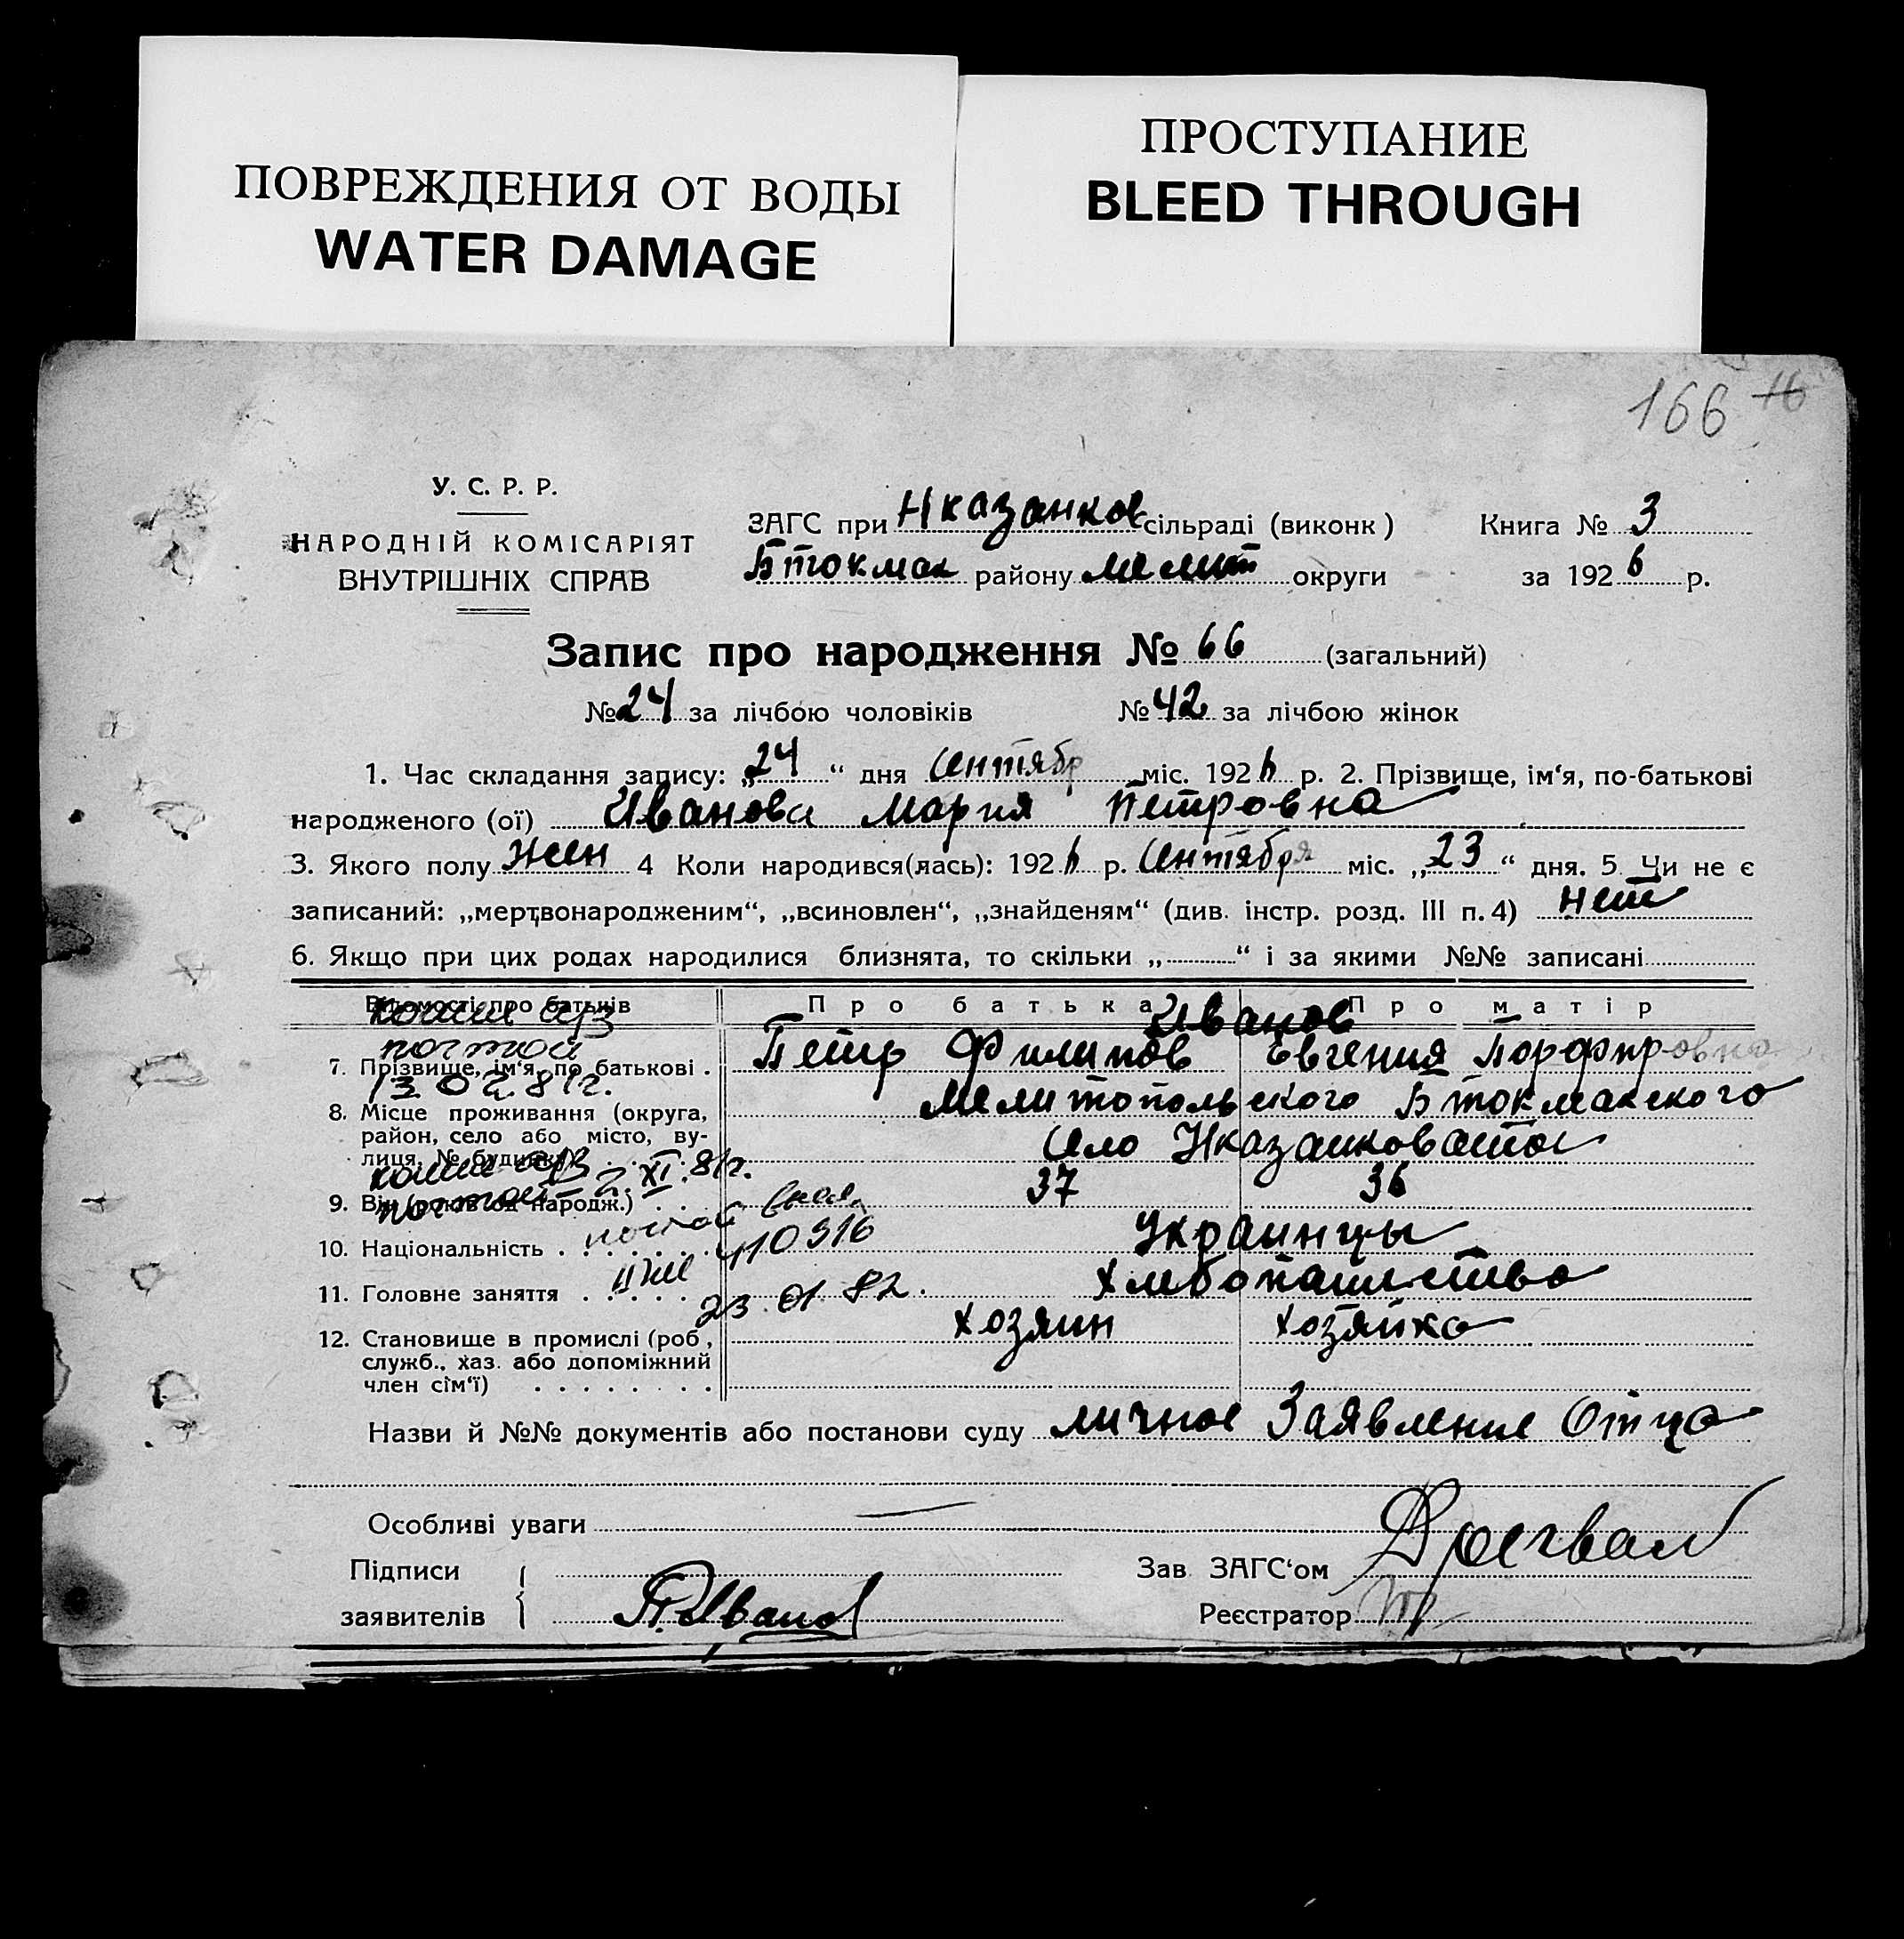 ПОВРЕЖДЕНИЯ ОТ ВОДЫ
WATER DAMAGE
ПРОСТУПАНИЕ
BLEED THROUGH
166 16
У. С. Р. Р.
НАРОДНІЙ КОМІСАРІЯТ
ВНУТРІШНІХ СПРАВ
ЗАГС при Нказанков сільраді (виконк)
Бтокмак району мелит округи
Книга № 3
за 1926 р.
Запис про народження № 66 (загальний)
№ 24 за лічбою чоловіків № 42 за лічбою жінок
1. Час складання запису: „24“ дня сентябр міс. 1926 р. 2. Прізвище, ім‘я, по-батькові
народженого (ої) Иванова Мария Петровна
3. Якого полу жен 4 Коли народився(лась): 1926 р. сентября міс. „23“ дня. 5 Чи не є
записаний: „мертвонародженим“, „всиновлен“, „знайденям“ (див. інстр. розд. III п. 4) нет
6. Якщо при цих родах народилися близнята, то скільки „ “ і за якими №№ записані
Відомості про батьків Про батька Про матір
Иванов
почтой
7. Прізвище, ім‘я, по батькові . Петр Филипов Евгения Порфировна
13.02.81г.
8. Місце проживання (округа, район, село або місто, вулиця, № будинку) Мелитопольского Бтокмакского
село Нказанковатое
2.XI.81г.
почтой
9. Вік (років од народж.) 37 36
10. Національність Украинцы
410316
11. Головне заняття Хлебопашество
23.01.82.
12. Становище в промислі (роб, хозяин хозяйка
служб., хаз. або допоміжний
член сім‘ї)
Назви й №№ документів або постанови суду личное Заявление Отца
Особливі уваги —
Підписи
заявителів П.Иванов
Зав ЗАГС‘ом
Реєстратор